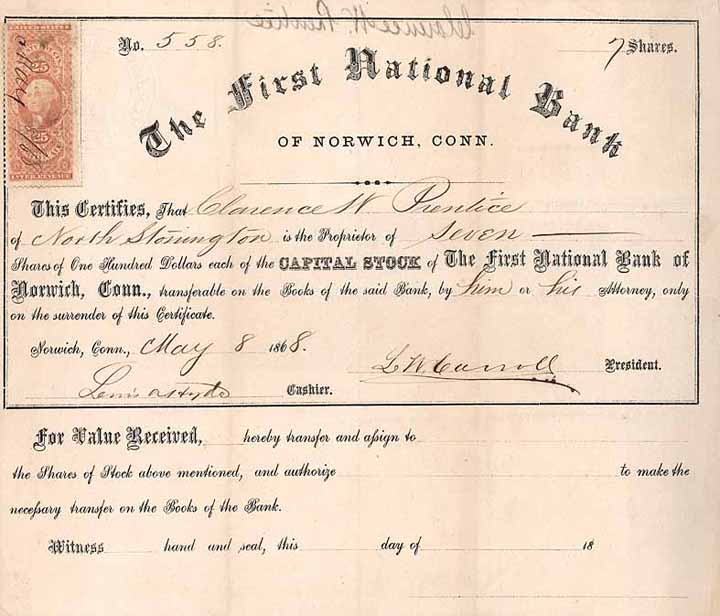 Clarence W. Prentice
No. 558.
7 Shares.
The First National Bank
OF NORWICH, CONN.
UNITED STATES
25 25
INTER. REVENUE
May 8/68
This Certifies, That Clarence W. Prentice
of North Stonington is the Proprietor of Seven
Shares of One Hundred Dollars each of the CAPITAL STOCK of The First National Bank of
Norwich, Conn., transferable on the Books of the said Bank, by him or his Attorney, only
on the surrender of this Certificate.
Norwich, Conn., May 8 1868.
L W Carroll President.
Lewis A Hyde Cashier.
For Value Received, hereby transfer and aſsign to
the Shares of Stock above mentioned, and authorize to make the
neceſsary transfer on the Books of the Bank.
Witness hand and seal, this day of 18